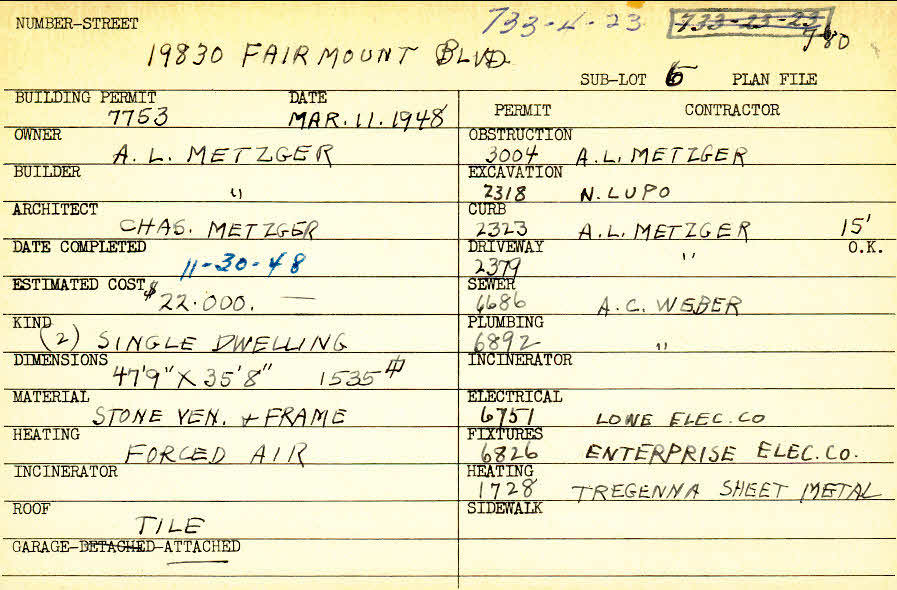 NUMBER-STREET 733-4-23 733-23-23
780
19830 FAIRMOUNT BLVD.
SUB-LOT 6 PLAN FILE
BUILDING PERMIT DATE
7753 MAR. 11. 1948
OWNER
A. L. METZGER
BUILDER
"
ARCHITECT
CHAS. METZGER
DATE COMPLETED
11-30-48
ESTIMATED COST
$22.000. —
KIND
(2) SINGLE DWELLING
DIMENSIONS
47'9" X 35'8" 1535
MATERIAL
STONE VEN. + FRAME
HEATING
FORCED AIR
INCINERATOR
ROOF
TILE
GARAGE-DETACHED-ATTACHED
PERMIT CONTRACTOR
OBSTRUCTION
3004 A. L. METZGER
EXCAVATION
2318 N. LUPO
CURB
2323 A. L. METZGER 15'
DRIVEWAY O.K.
2379 "
SEWER
6686 A. C. WEBER
PLUMBING
6892 "
INCINERATOR
ELECTRICAL
6751 LOWE ELEC. CO
FIXTURES
6826 ENTERPRISE ELEC. CO.
HEATING
1728 TREGENNA SHEET METAL
SIDEWALK